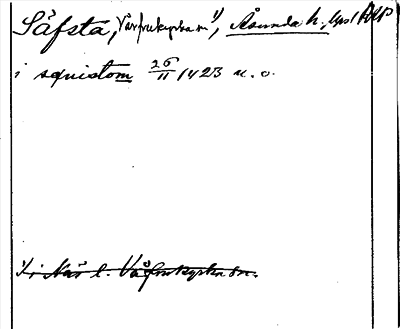 Såfsta, Vårfrukyrka sn 1), Åsunda h., Upsl
i sqvistom 25/11 1423 u. o.
1) i När l. Vårfrukyrka sn.